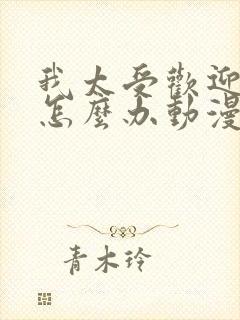 我太受歡迎
怎麼办動漫
青木玲